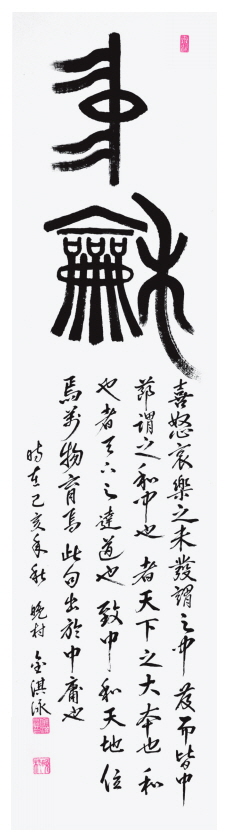 中龢
喜怒哀樂之未發謂之中 發而皆中
節謂之和中也 者天下之大本也 和
也者天下之達道也 致中和天地位
焉萬物育焉 此句出於中庸也
時在己亥年秋 晚村 金淇泳